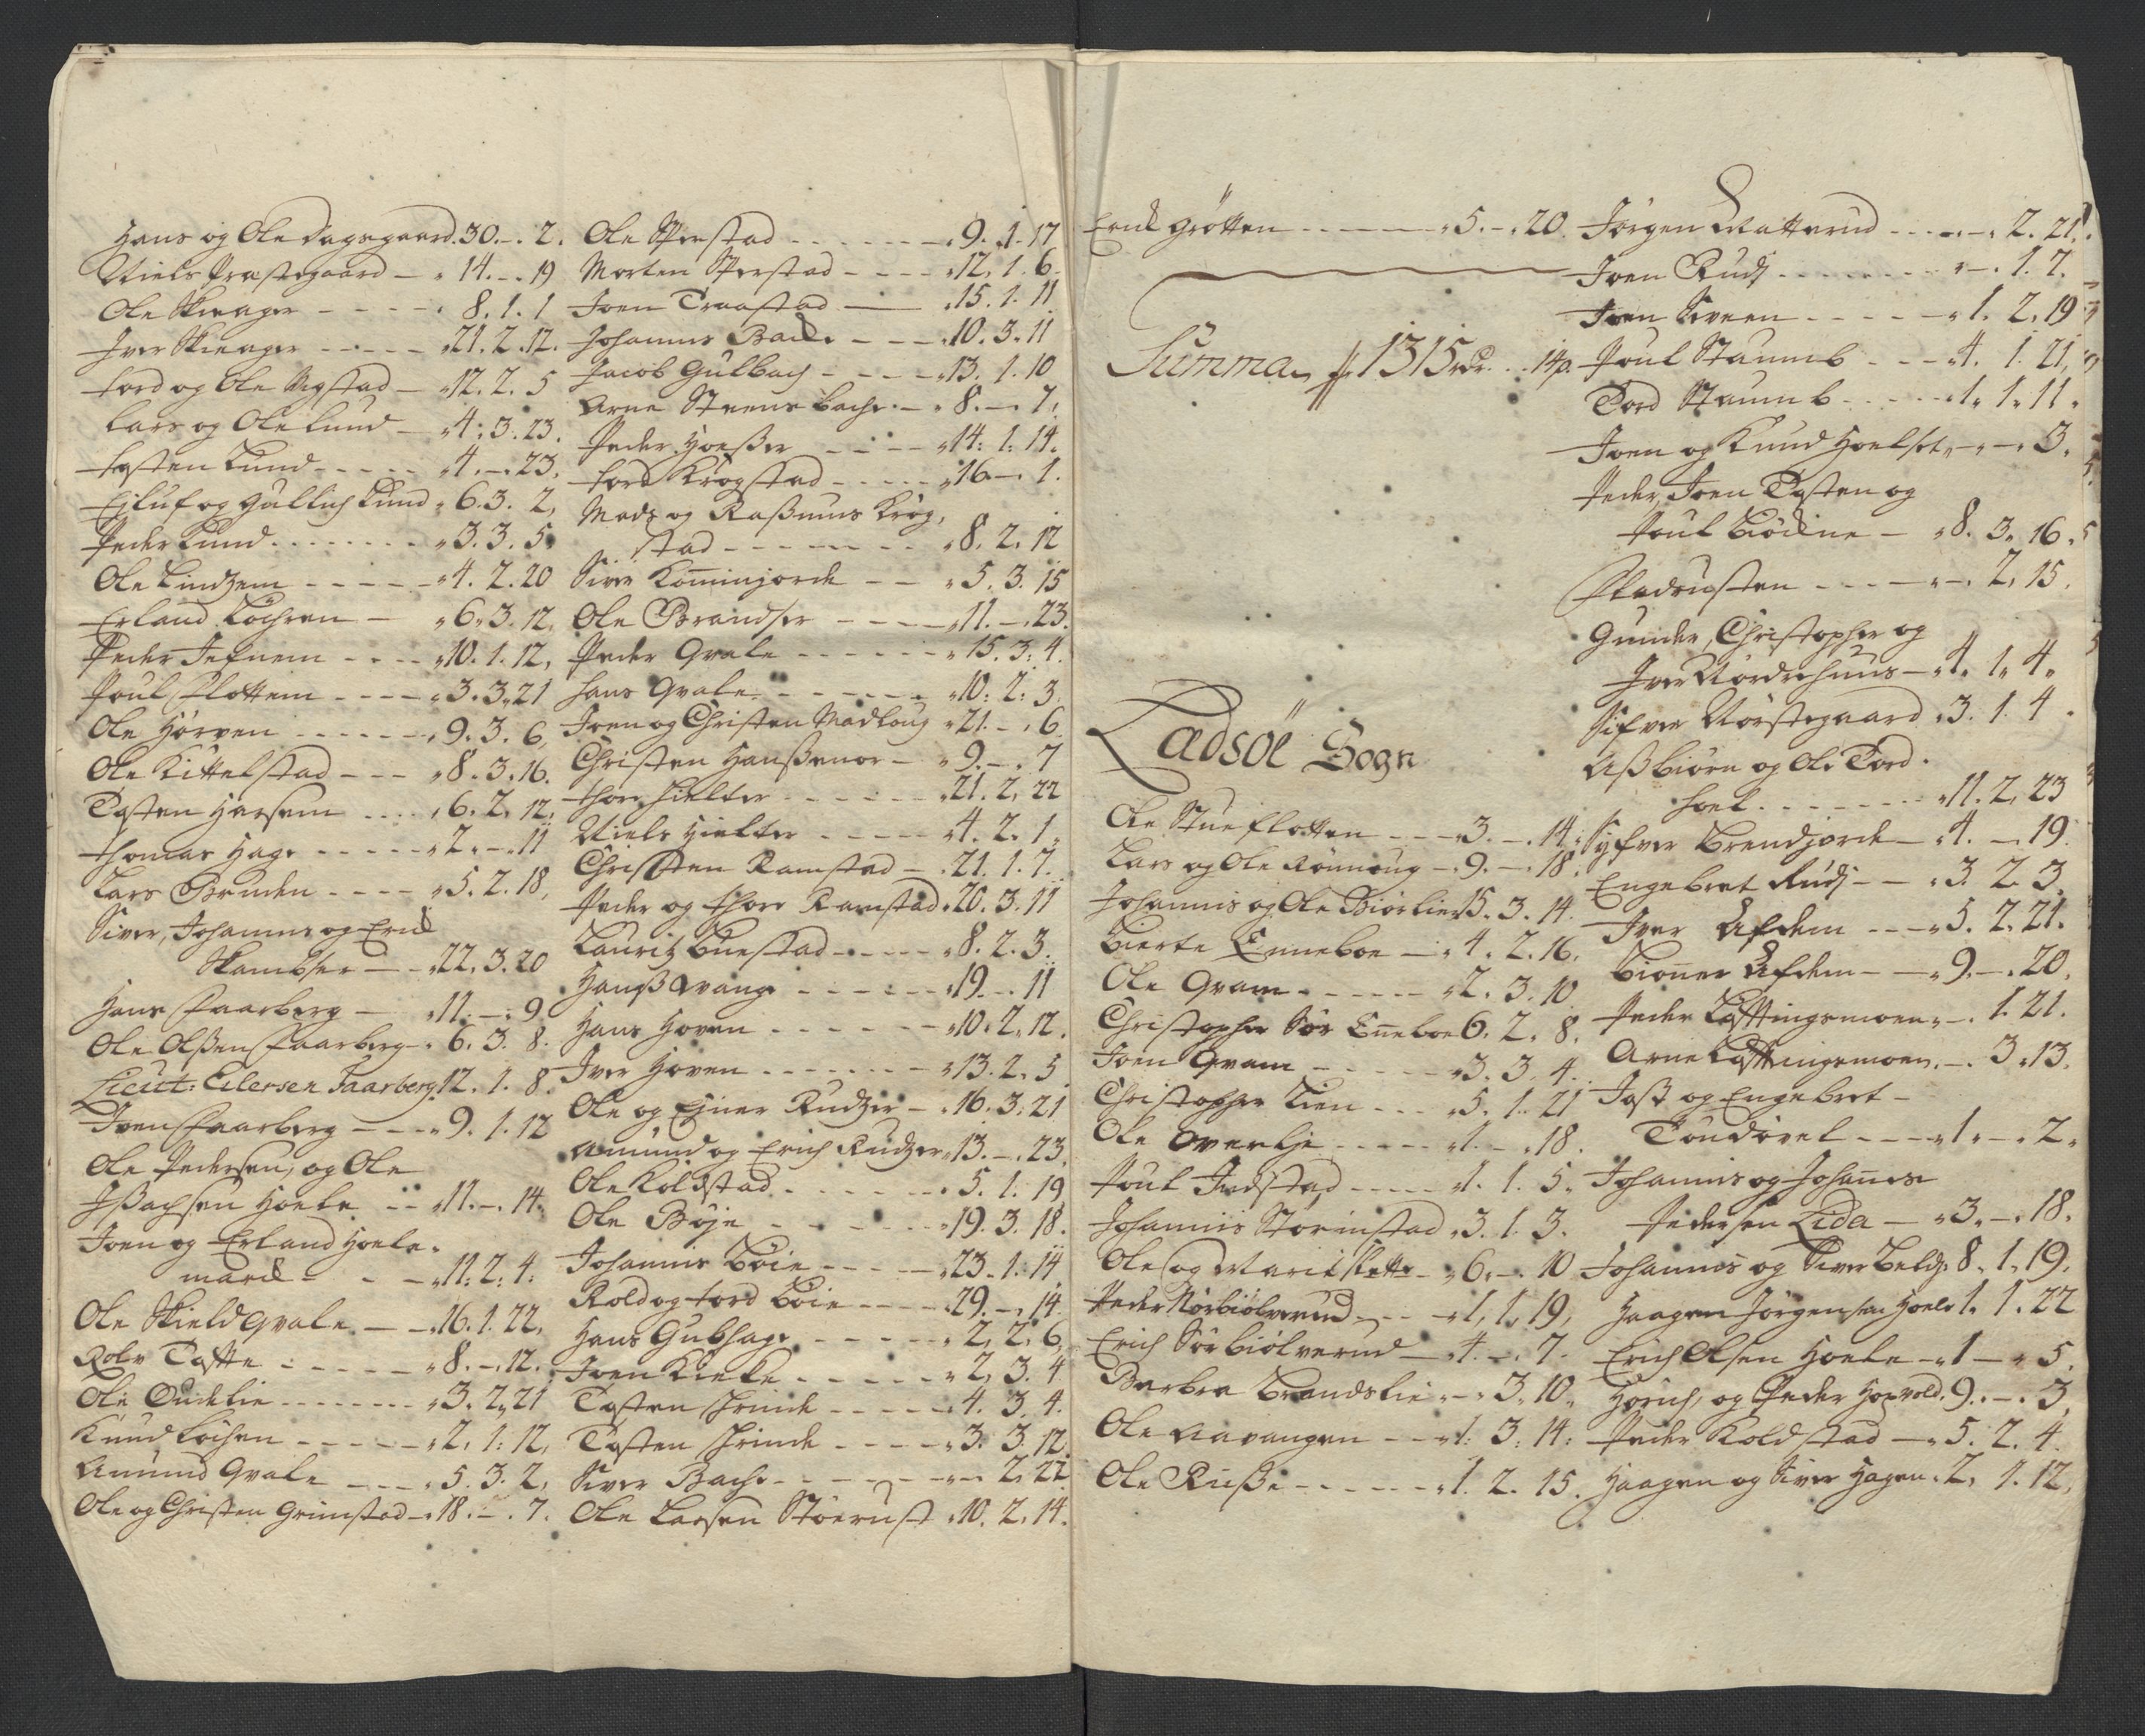 Hans og Ole Dagsgaard. 30. - . 2.
Niels Præstegaard - . 14. - . 19
Ole Skieager - - - - . 8. 1. 1
Iver Skieager - - - - . 21. 2. 12.
Tord og Ole Migstad - . 12. 2. 5
Lars og Ole Lund - . 4. 3. 23.
Tosten Lund - - - - . 4. - . 23.
Ejluf og Gullich Lund . 6. 3. 2,
Peder Lund . . . . . . . 3. 3. 5.
Ole Lindzem - - - - - . 4. 2. 20
Erland Løchren - . 6. 3. 12,
Peder Jefnem - - - - . 10. 1. 12,
Poul Flottem - - - - . 3. 3. 21
Ole Hørven - - - - - - . 9. 3. 6,
Ole Kittelstad - - - . 8. 3. 16.
Tosten Harsem - - - . 6. 2. 12.
Thomas Hage - - - - - . 2. - . 11
Lars Brenden - - - - . 5. 2. 18,
Siver, Johannes og Erik
Skambser - - . 22. 3. 20
Hans Faarberg - . 11. - . 9.
Ole Olßen Faarberg - . 6. 3. 8.
Lieut: Eilersen Faarberg. 12. 1. 8.
Joen Faarberg - - - . 9. 1. 12
Ole Pedersen, og Ole
Jßachsen Hoele - - . 11. - . 14.
Joen og Erland Hoele-
march - - - . 11: 2: 4:
Ole Skield Qvale - - . 16. 1. 22,
Rolv Tofte - - - - - . 8. - . 12.
Ole Oudelie - - - - - - . 3. 2. 21
Knud Løchen - - - - - . 2. 1: 12,
Amund Qvale - - - . 5. 3. 2,
Ole og Christen Grimstad - . 18. - . 7.
Ole Sperstad - - - - - - . 9. 1. 17
Morten Sperstad - - - - . 12. 1. 6.
Joen Traastad - . 15. 1. 11
Johannes Backe - - - . 10. 3. 11
Jacob Gulbach - - - - . 13. 1. 10
Arne Steensbache - . 8. - . 7.
Peder Hoeßer - - - - . 14: 1: 14.
Tord Krogstad - - - - - . 16. - . 1.
Mads og Raßmus Krog,
stad - - - - - - - . 8. 2. 12
Siver Kominjorde - - . 5. 3. 15
Ole Brandser - - - - - . 11. - . 23.
Peder Qvale - - - - - - . 15. 3: 4.
Hans Qvale - - - - - - - . 10: 2: 3.
Joen og Christen Madtoug . 21. - . 6
Christen Hanßenor - . 9. - . 7
Thore Hielter - - - - - . 21. 2, 22
Niels Hielter - - - - - . 4. 2. 1,
Christen Ramstad - . 21. 1. 7.
Peder og Thore Ramstad . 20. 3. 11
Lauritz Buestad - - - - - . 8. 2. 3.
Hanß Qvange - - - - - - . 19. - . 11
Hans Hoven - - - - - - . 10. 2. 12.
Iver Hoven - - - - - - - . 13. 2. 5.
Ole og Ejner Rudzer - . 16. 3. 21
Amund og Erich Rudzer . 13. - . 23,
Ole Koldstad - - - - - - . 5. 1. 19
Ole Bøje - - - - - - . 19. 3. 18.
Johannes Bøie - - - - - . 23. 1. 14
Rold og Tord Bøie - - - - . 29. - . 14.
Hans Gubhage - - - - - . 2, 2. 6,
Joen Kieke - - - - - - . 2, 3. 4
Tosten Frinde - - - - - . 4. 3. 4.
Tosten Frinde - - - - . 3. 3. 12.
Siver Bache - - - - - - - . 2. 22
Ole Larsen Støerust . 10. 2. 14.
Erik Grøtten - - - - - - . 5. - . 20.
Summa 1315 rdr. . . 14 p.
Lædsøe Sogn
Ole Stueflotten - - - . 3. - . 14.
Lars og Ole Rønnoug - . 9. - . 18.
Johannis og Ole Biørlie . 15. 3. 14.
Bierte Enneboe - . 4. 2. 16.
Ole Qvam - - - - - . 2. 3. 10.
Christopher Sør Enneboe 6. 2. 8.
Joen Qvam - - - - - . 3. 3. 4.
Christopher Lien - - - . 5. 1. 21
Ole Overlje - - - - - . 1. - . 18.
Poul Indstad - - - - . 1. 1. 5.
Johannis Storinstad . 3. 1. 3.
Ole og Marit Slette - . 6. - . 10
Peder Nørbiølverud - - - . 1, 1, 19,
Erich Sørbiølverud - . 4. - . 7.
Barbra Brandslie . - . 3. 10.
Ole Navangen - - . 1. 3: 14:
Ole Ruße - - - - - . 1. 2. 15.
Jørgen Matterud - - - - . 2. 21.
Joen Rudj - - - - - - - . - . 1. 7.
Joen Sveen - - - - - . 1. 2, 19
Poul Staumb - - - . 4. 1. 21,
Tord Staumb - - - - - . 1. 1. 11.
Joen og Knud Hoelset . - . - . 3.
Peder, Joen Tosten og
Poul Bødene - . 8. 3. 16.
Stadrusten - - - - - . 2, 15.
Gunder, Christopher og
Iver Nordrehuus - . 4. 1. 4.
Sifver Nørstegaard . 3. 1. 4
Aßbiørn og Ole Tord-
hoel - - - - - - . 11. 2, 23
Syfver Brendjorde - . 4. - . 19.
Engebret Rudj - - . 3. 2. 3.
Iver Afdem - - - . 5. 2. 21.
Bionner Afdem - - . 9. - . 20.
Peder Lasttingsmoen . - . 1. 21.
Arne Lasttingsmoen . - . 3. 13.
Jost og Engebret -
Toudøvel - - - - . 1. - . 2.
Johannis og Johannes
Pedersen Lida - . 3. - . 18.
Johannes og Siver Beldz: 8. 1, 19.
Haagen Jørgensen Hoele 1. 1. 22
Erich Olsen Hoele - . 1 - . 5.
Hørich, og Peder Hopvold. 9. - . 3.
Peder Koldstad - . 5. 2. 4.
Haagen og Siver Hagen . 2, 1. 12,